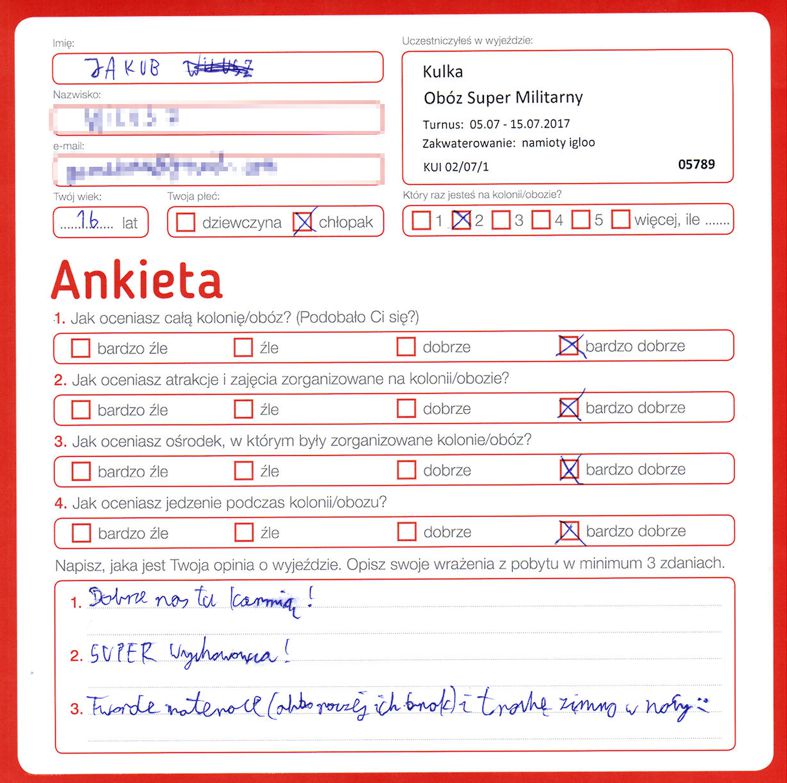 Imię:
JAKUB
Nazwisko:
e-mail:
Twój wiek:
16 lat
Twoja płeć:
dziewczyna chłopak
Uczestniczyłeś w wyjeździe:
Kulka
Obóz Super Militarny
Turnus: 05.07 - 15.07.2017
Zakwaterowanie: namioty igloo
KUI 02/07/1 05789
Który raz jesteś na kolonii/obozie?
1 2 3 4 5 więcej, ile .......
Ankieta
1. Jak oceniasz całą kolonię/obóz? (Podobało Ci się?)
bardzo źle źle dobrze bardzo dobrze
2. Jak oceniasz atrakcje i zajęcia zorganizowane na kolonii/obozie?
bardzo źle źle dobrze bardzo dobrze
3. Jak oceniasz ośrodek, w którym były zorganizowane kolonie/obóz?
bardzo źle źle dobrze bardzo dobrze
4. Jak oceniasz jedzenie podczas kolonii/obozu?
bardzo źle źle dobrze bardzo dobrze
Napisz, jaka jest Twoja opinia o wyjeździe. Opisz swoje wrażenia z pobytu w minimum 3 zdaniach.
1. Dobrze nas tu karmią!
2. SUPER wychowawca!
3. Twarde materace (albo raczej ich brak) i trochę zimno w nocy :)